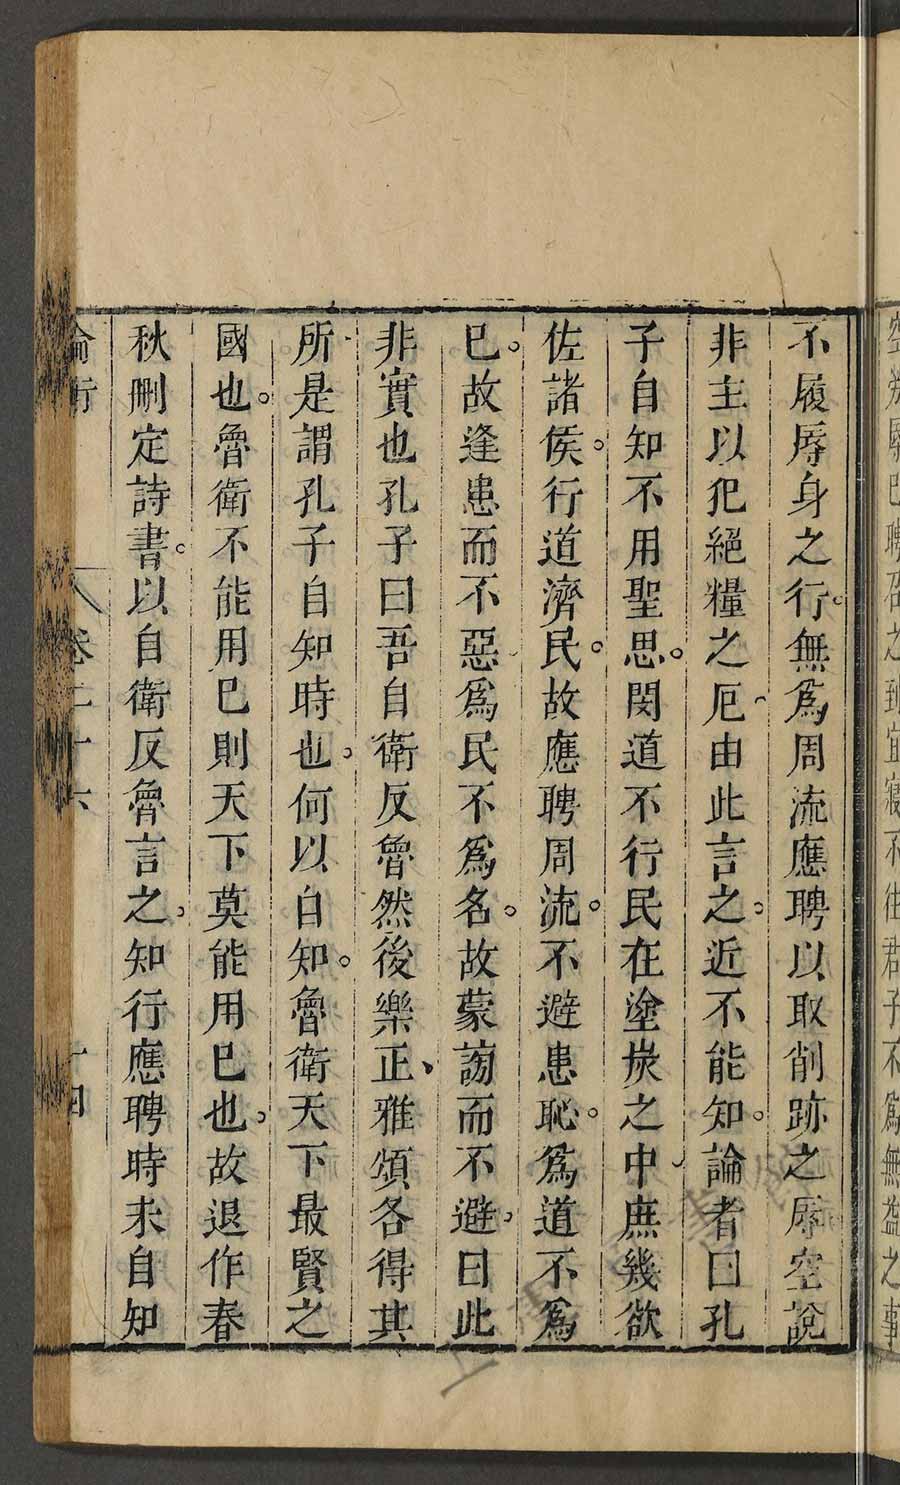 不履辱身之行。無爲周流應聘以取削跡之辱空說
非主以犯絕糧之厄、由此言之。近不能知。論者曰孔
子自知不用聖思。閔道不行民在塗炭之中、庶幾欲
佐諸侯。行道濟民。故應聘周流。不避患恥。爲道不爲
已。故逢患而不惡爲民不爲名。故蒙謗而不避、曰此
非實也孔子曰吾自衛反魯然後樂正、雅頌各得其
所是謂孔子自知時也、何以自知。魯衛天下最賢之
國也。魯衛不能用已則天下莫能用已也、故退作春
秋刪定詩書。以自衛反魯言之、知行應聘時未自知
論衡 卷二十六 十四